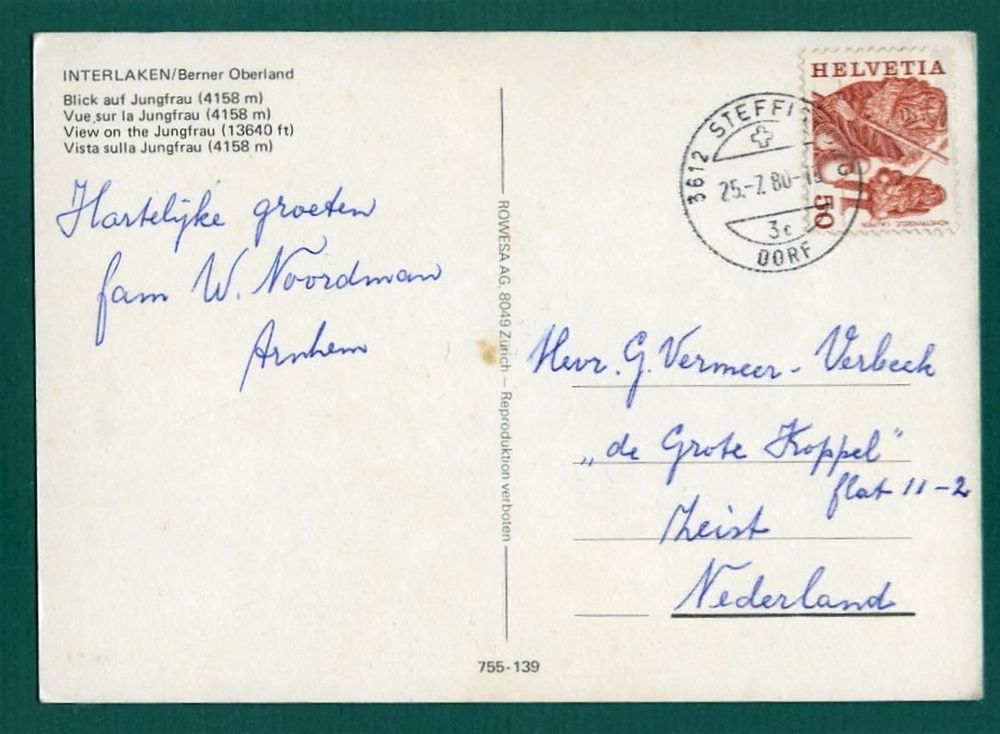 INTERLAKEN/Berner Oberland
Blick auf Jungfrau (4158 m)
Vue sur la Jungfrau (4158 m)
View on the Jungfrau (13640 ft)
Vista sulla Jungfrau (4158 m)
Hartelijke groeten
fam W. Noordman
Arnhem
ROWESA AG, 8049 Zürich — Reproduktion verboten
755-139
HELVETIA
50
3612 STEFFISBURG
25.-7.80-
3c
DORF
Hevr. G. Vermeer - Verbeek
„de Grote Koppel"
flat 11-2
Zeist
Nederland